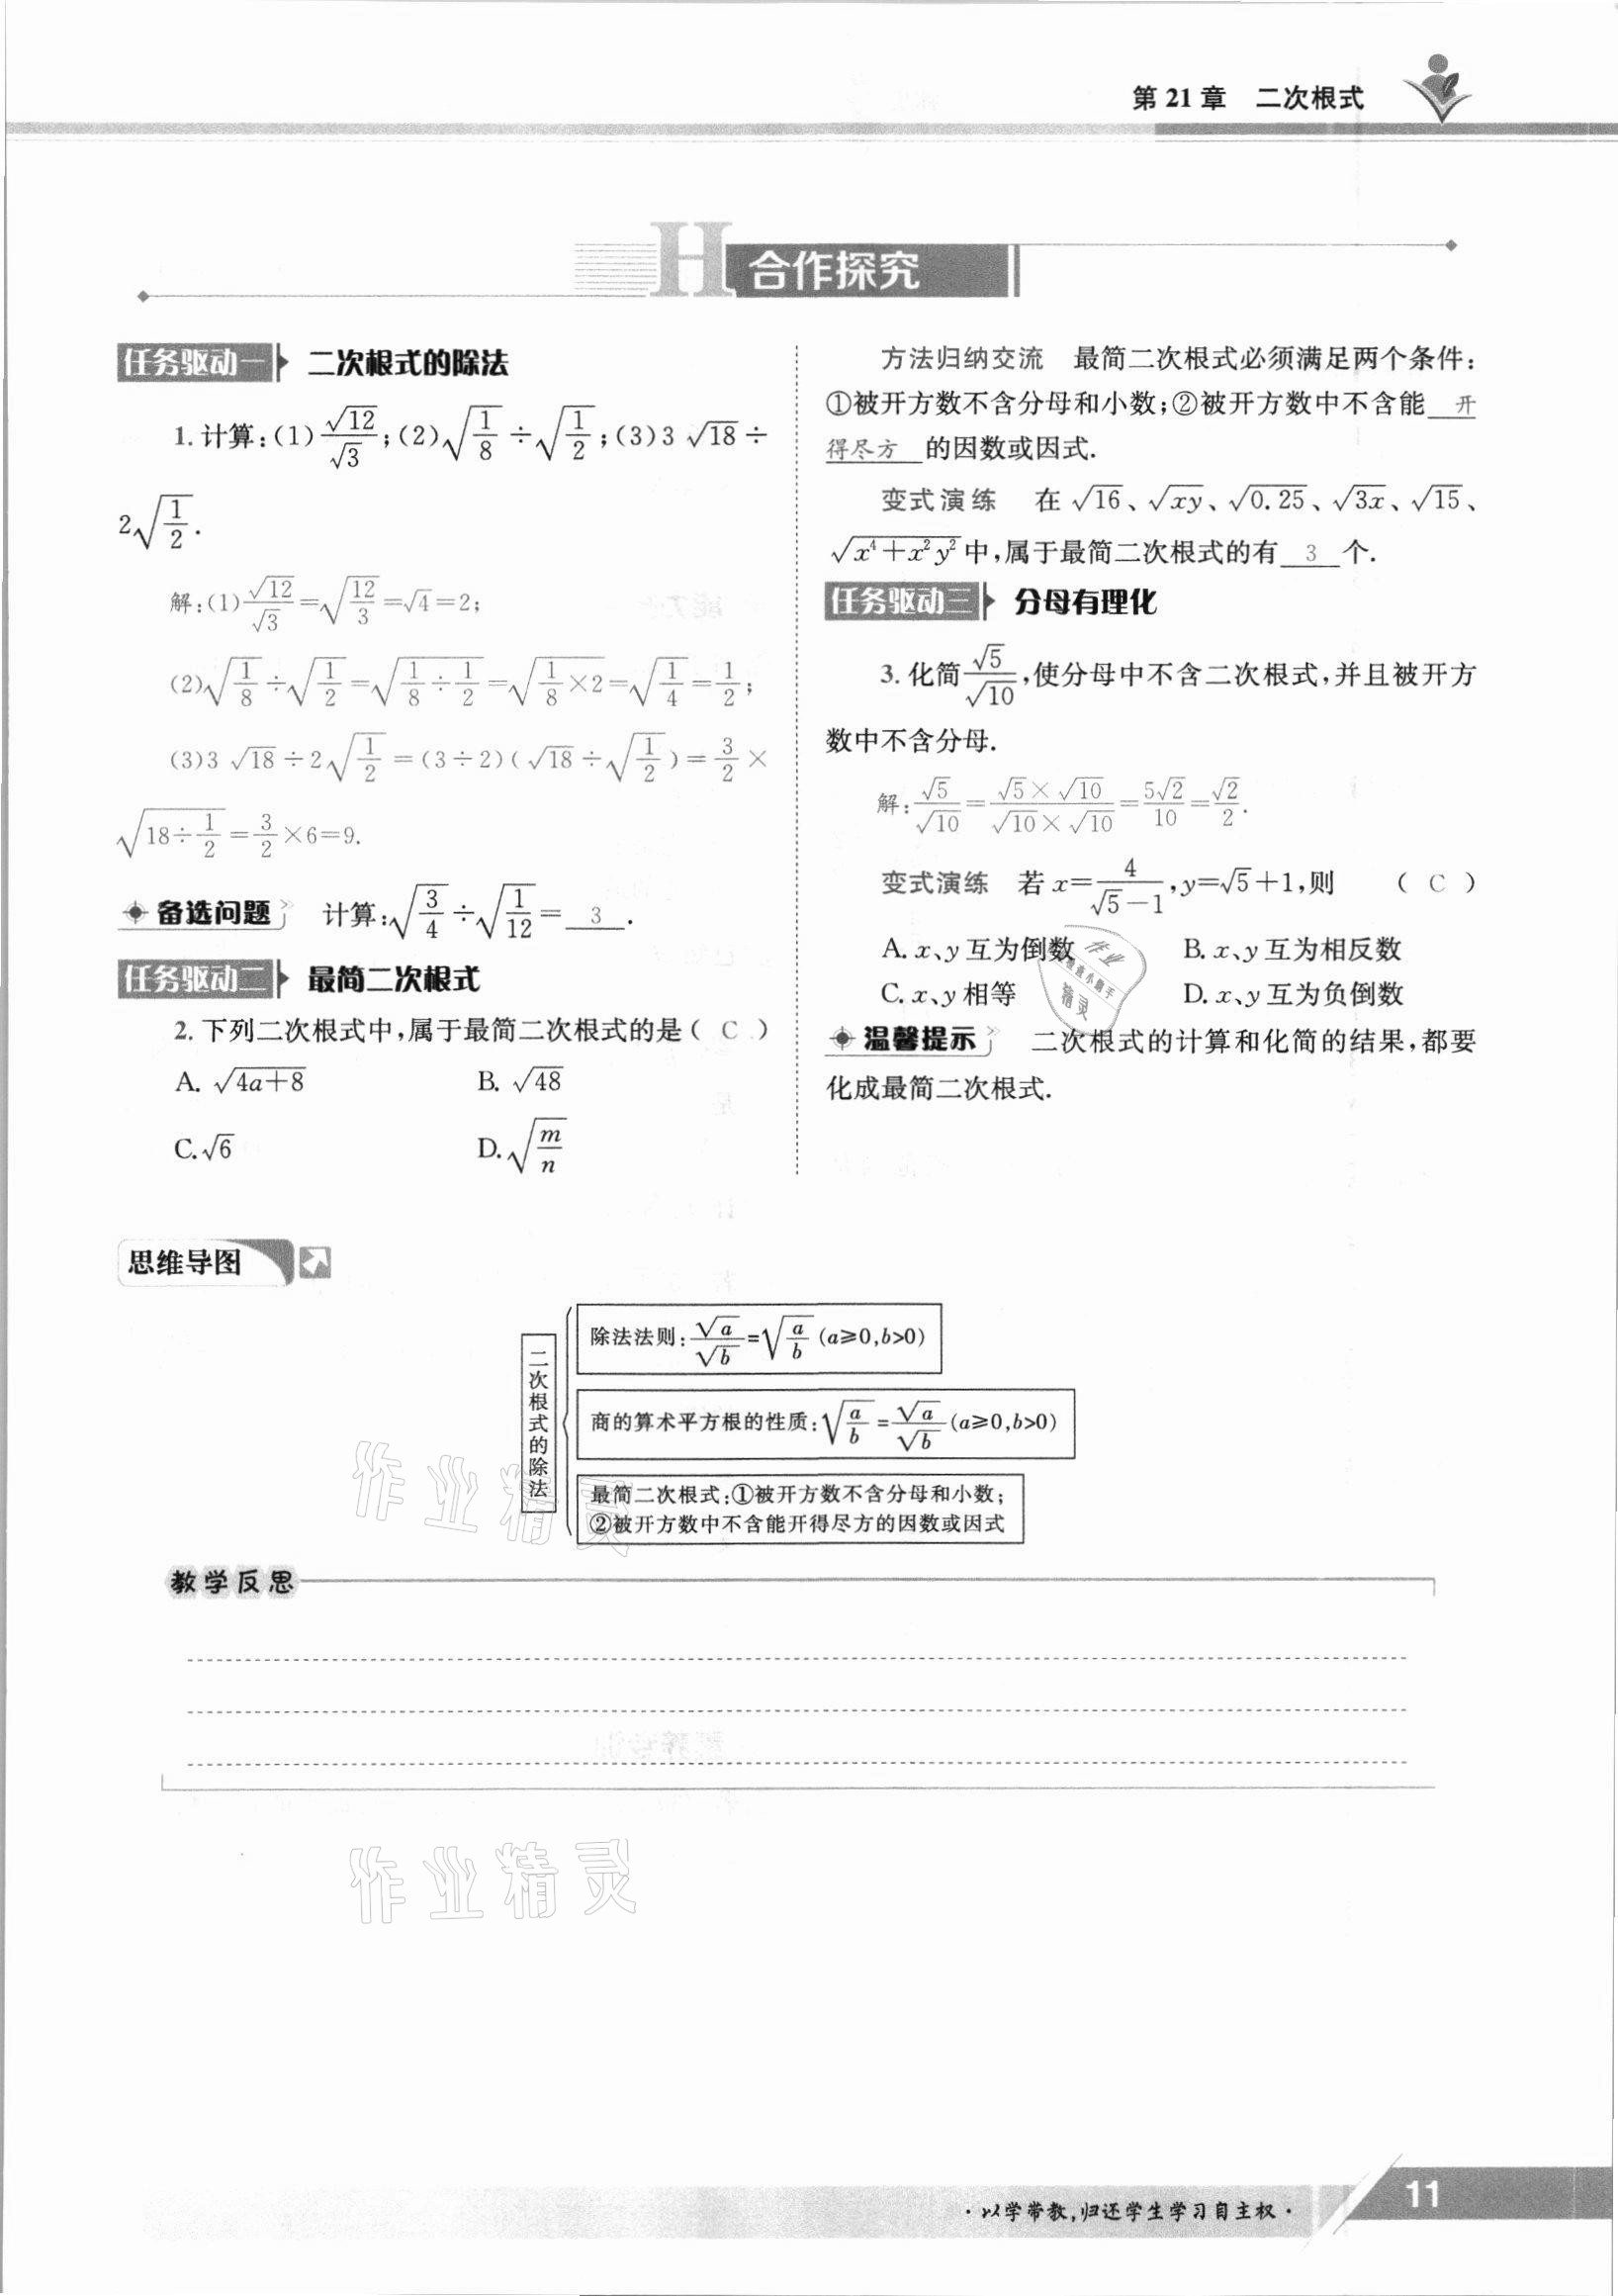 第 21 章 二次根式
H 合作探究
任务驱动一 二次根式的除法
1. 计算:(1)√12/√3;(2)√(1/8)÷√(1/2);(3)3√18÷
2√(1/2).
解:(1)√12/√3=√(12/3)=√4=2;
(2)√(1/8)÷√(1/2)=√(1/8÷1/2)=√(1/8×2)=√(1/4)=1/2;
(3)3√18÷2√(1/2)=(3÷2)(√18÷√(1/2))=3/2×
√(18÷1/2)=3/2×6=9.
备选问题 计算:√(3/4)÷√(1/12)= 3 .
任务驱动二 最简二次根式
2. 下列二次根式中,属于最简二次根式的是( C )
A. √(4a+8) B. √48
C. √6 D. √(m/n)
方法归纳交流 最简二次根式必须满足两个条件:
①被开方数不含分母和小数;②被开方数中不含能 开
得尽方 的因数或因式.
变式演练 在√16、√(xy)、√0.25、√(3x)、√15、
√(x⁴+x²y²)中,属于最简二次根式的有 3 个.
任务驱动三 分母有理化
3. 化简√5/√10,使分母中不含二次根式,并且被开方
数中不含分母.
解:√5/√10=(√5×√10)/(√10×√10)=5√2/10=√2/2.
变式演练 若 x=4/(√5-1),y=√5+1,则 ( C )
A. x、y 互为倒数 B. x、y 互为相反数
C. x、y 相等 D. x、y 互为负倒数
温馨提示 二次根式的计算和化简的结果,都要
化成最简二次根式.
思维导图
二次根式的除法
除法法则:√a/√b=√(a/b)(a≥0,b>0)
商的算术平方根的性质:√(a/b)=√a/√b(a≥0,b>0)
最简二次根式:①被开方数不含分母和小数;
②被开方数中不含能开得尽方的因数或因式
作业精灵
教学反思
作业精灵
·以学带教,归还学生学习自主权·
11